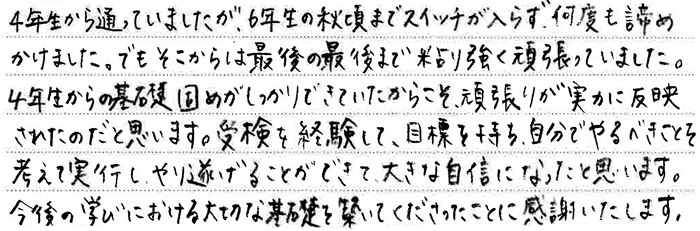 4年生から通っていましたが、6年生の秋頃までスイッチが入らず、何度も諦め
かけました。でもそこからは最後の最後まで粘り強く頑張っていました。
4年生からの基礎固めがしっかりできていたからこそ、頑張りが実力に反映
されたのだと思います。受検を経験して、目標を持ち、自分でやるべきことを
考えて実行し、やり遂げることができて、大きな自信になったと思います。
今後の学びにおける大切な基礎を築いてくださったことに感謝いたします。